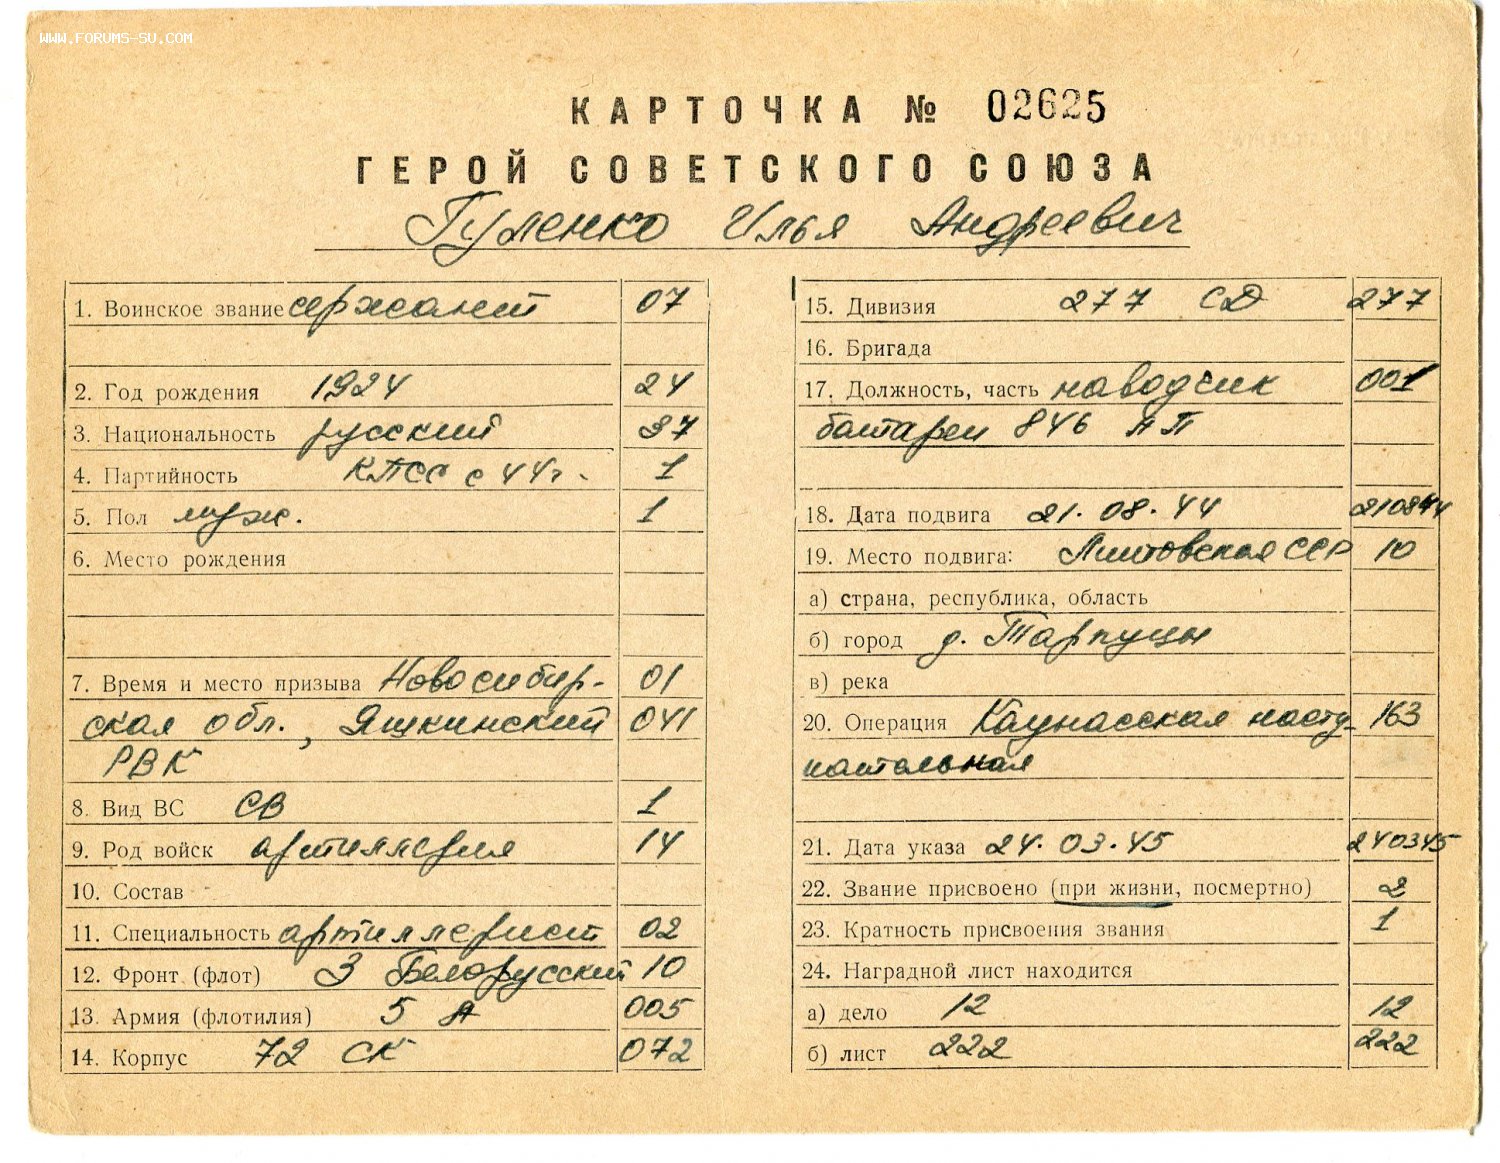 WWW.FORUMS-SU.COM
КАРТОЧКА № 02625
ГЕРОЙ СОВЕТСКОГО СОЮЗА
Гуленко Илья Андреевич
1. Воинское звание сержант 07
2. Год рождения 1924 24
3. Национальность русский 37
4. Партийность КПСС с 44г. 1
5. Пол муж. 1
6. Место рождения
7. Время и место призыва Новосибир- 01
ская обл., Яшкинский 041
РВК
8. Вид ВС СВ 1
9. Род войск артиллерия 14
10. Состав
11. Специальность артиллерист 02
12. Фронт (флот) 3 Белорусский 10
13. Армия (флотилия) 5 А 005
14. Корпус 72 СК 072
15. Дивизия 277 СД 277
16. Бригада
17. Должность, часть наводчик 001
батареи 846 АП
18. Дата подвига 21.08.44 210844
19. Место подвига: Литовская ССР 10
а) страна, республика, область
б) город д. Тарпуцы
в) река
20. Операция Каунасская насту- 163
пательная
21. Дата указа 24.03.45 240345
22. Звание присвоено (при жизни, посмертно) 2
23. Кратность присвоения звания 1
24. Наградной лист находится
а) дело 12 12
б) лист 222 222